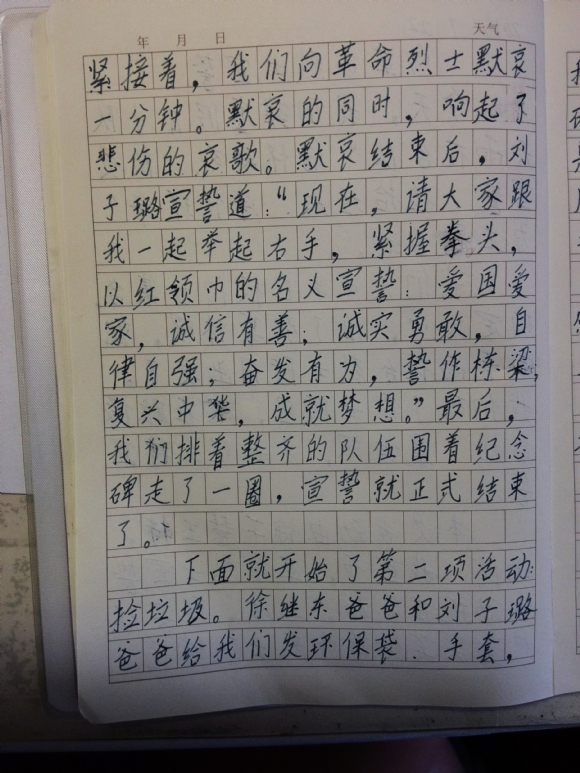 年 月 日 天气
紧接着，我们向革命烈士默哀
一分钟。默哀的同时，响起了
悲伤的哀歌。默哀结束后，刘
子璐宣誓道：“现在，请大家跟
我一起举起右手，紧握拳头，
以红领巾的名义宣誓：爱国爱
家，诚信有善；诚实勇敢，自
律自强；奋发有为，誓作栋梁，
复兴中华，成就梦想。”最后，
我们排着整齐的队伍围着纪念
碑走了一圈，宣誓就正式结束
了。
下面就开始了第二项活动：
捡垃圾。徐继东爸爸和刘子璐
爸爸给我们发环保袋．手套，